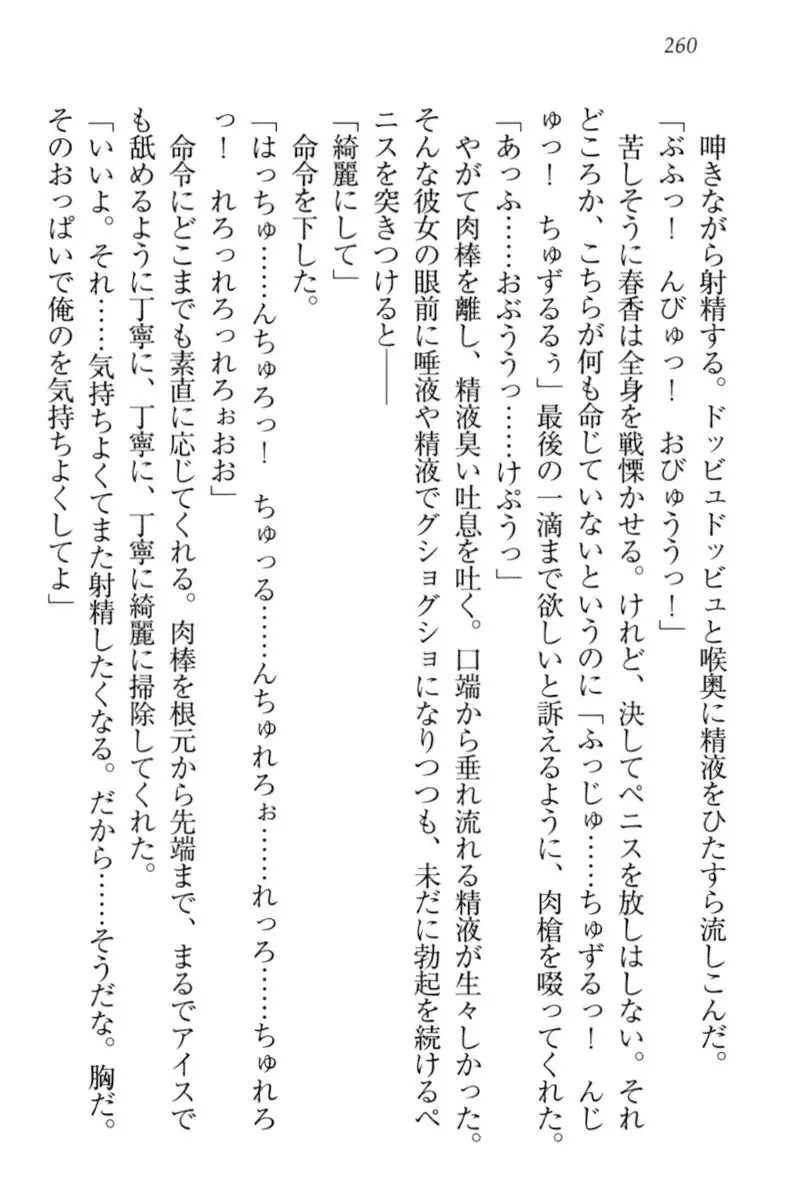 260
呻きながら射精する。ドッビュドッビュと喉奥に精液をひたすら流しこんだ。
「ぶふっ！　んびゅっ！　おびゅううっ！」
苦しそうに春香は全身を戦慄かせる。けれど、決してペニスを放しはしない。それ
どころか、こちらが何も命じていないというのに「ふっじゅ……ちゅずるっ！　んじ
ゅっ！　ちゅずるるぅ」最後の一滴まで欲しいと訴えるように、肉槍を啜ってくれた。
「あっふ……おぶううっ……けぷうっ」
やがて肉棒を離し、精液臭い吐息を吐く。口端から垂れ流れる精液が生々しかった。
そんな彼女の眼前に唾液や精液でグショグショになりつつも、未だに勃起を続けるペ
ニスを突きつけると――
「綺麗にして」
命令を下した。
「はっちゅ……んちゅろっ！　ちゅっる……んちゅれろぉ……れっろ……ちゅれろ
っ！　れろっれろっれろぉおお」
命令にどこまでも素直に応じてくれる。肉棒を根元から先端まで、まるでアイスで
も舐めるように丁寧に、丁寧に、丁寧に綺麗に掃除してくれた。
「いいよ。それ……気持ちよくてまた射精したくなる。だから……そうだな。胸だ。
そのおっぱいで俺のを気持ちよくしてよ」